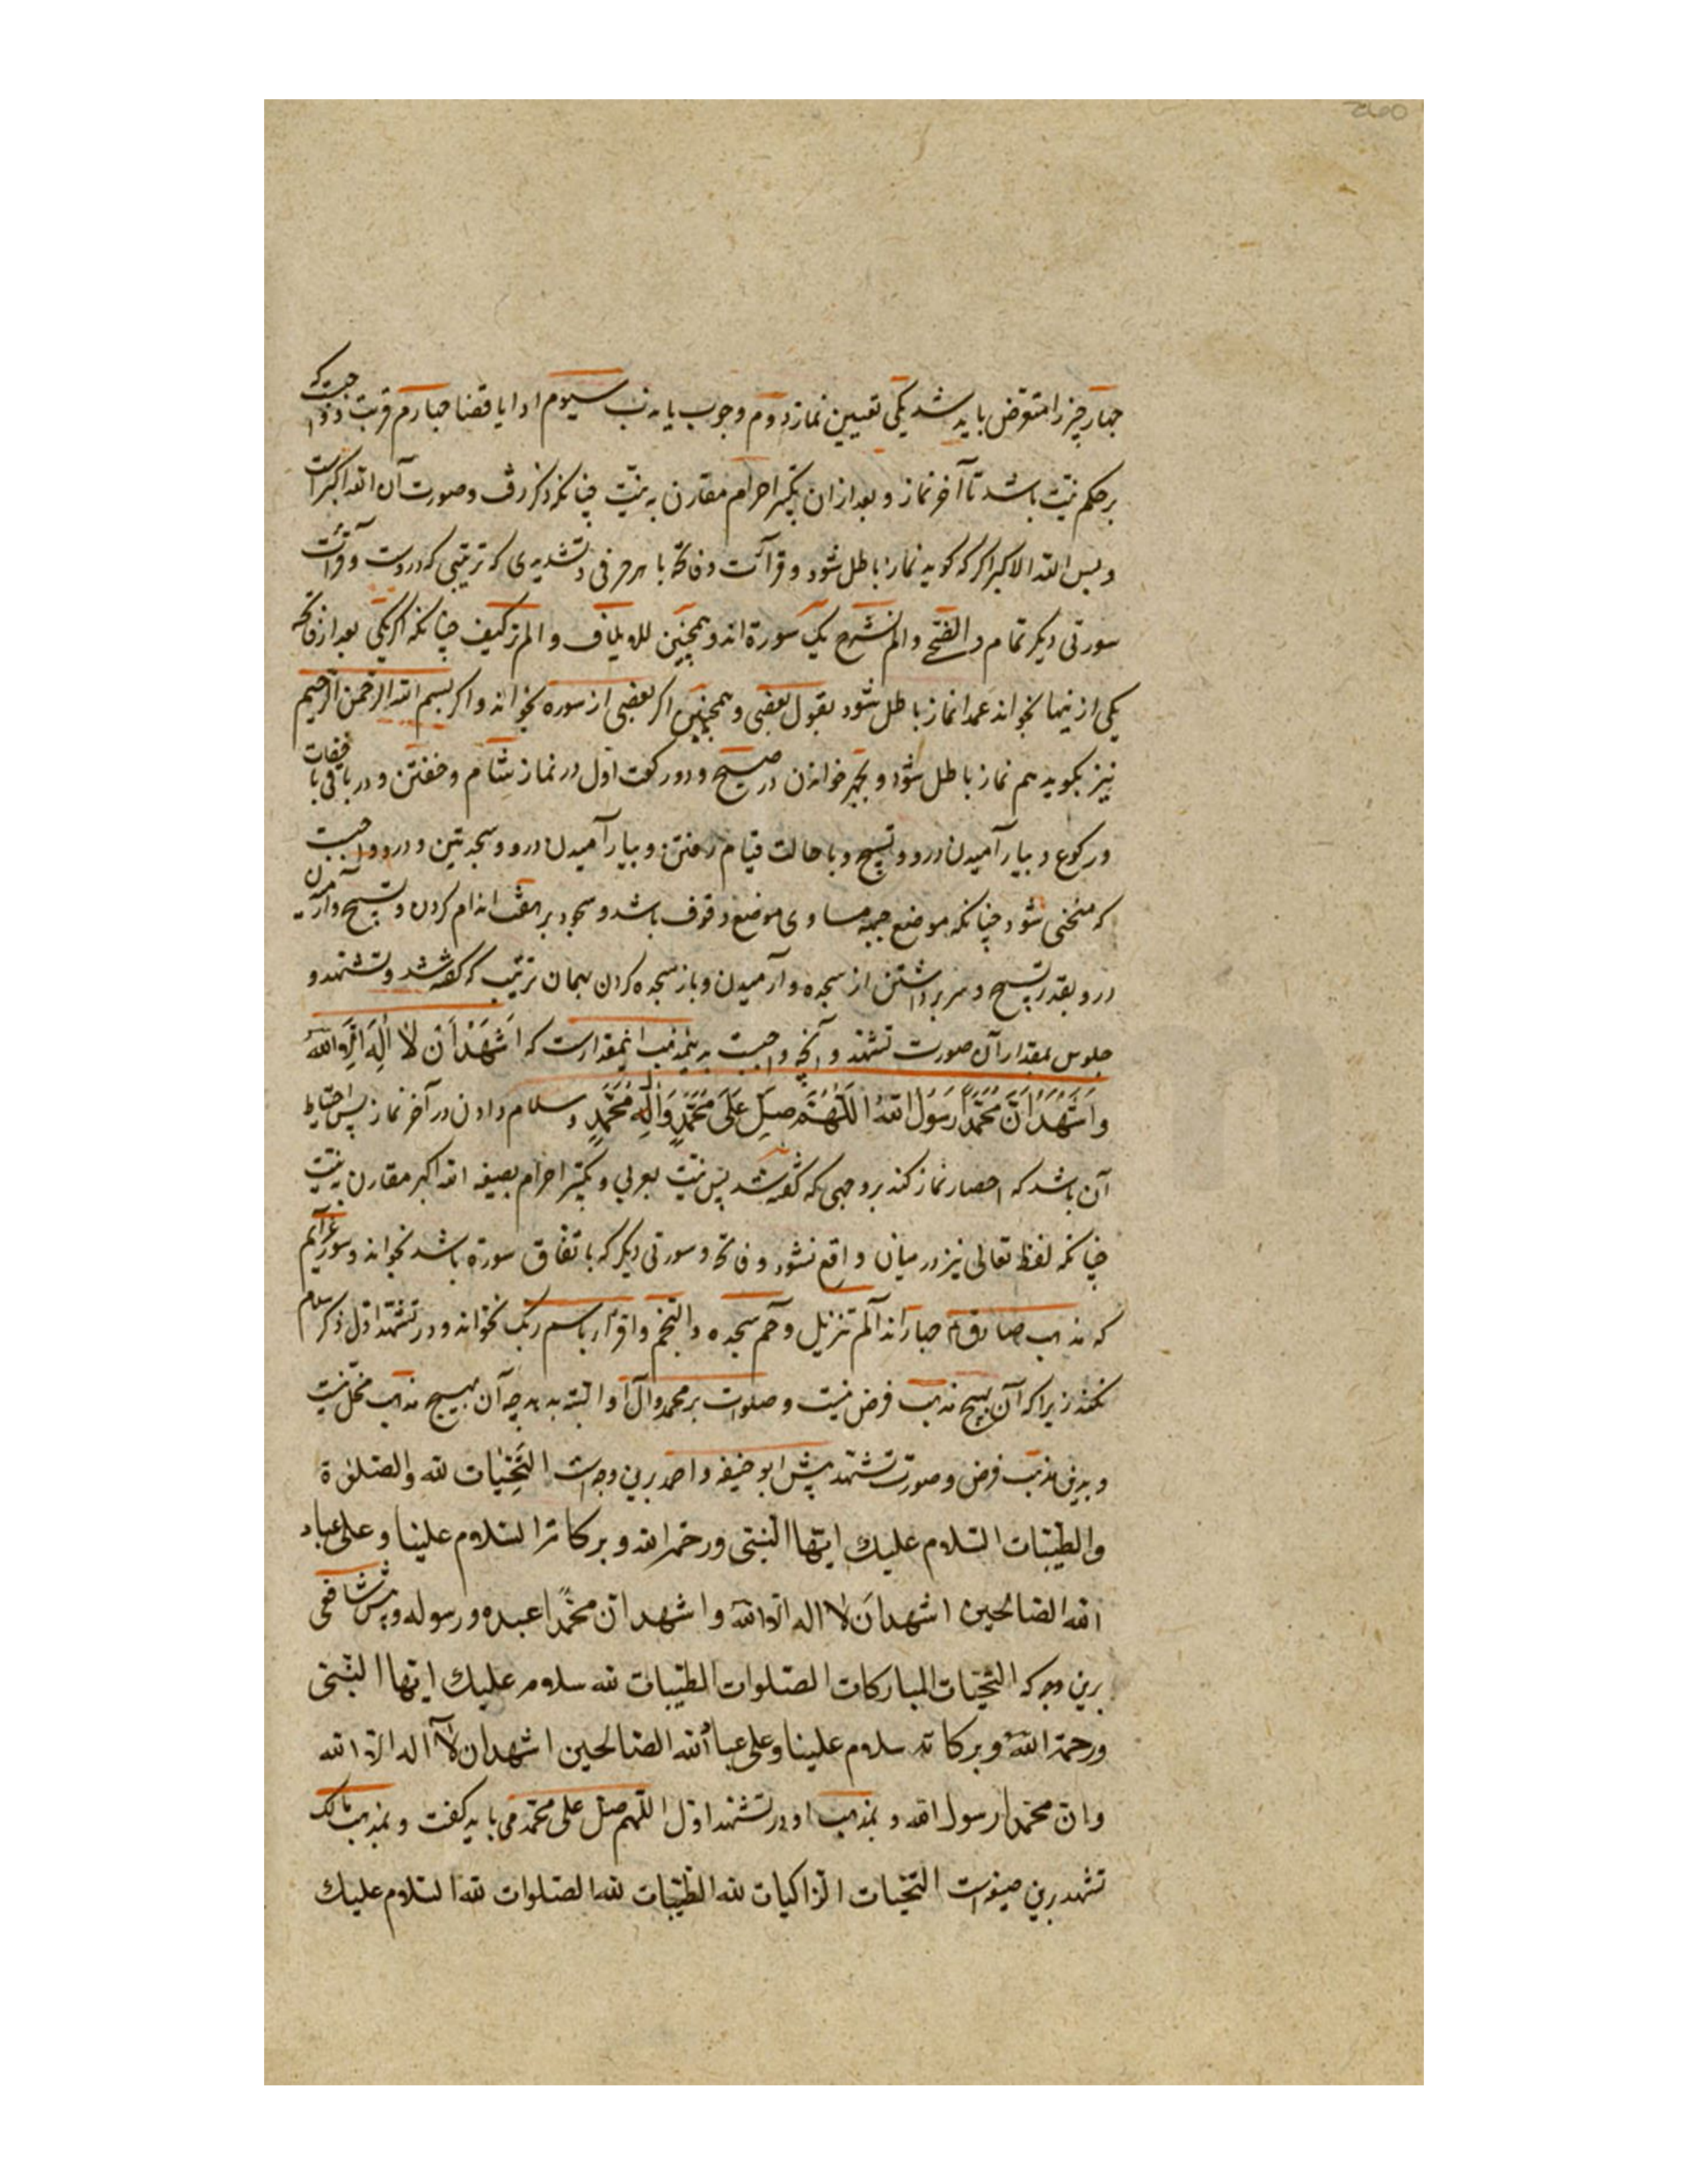 چهار چیز را متعرض باید شد یکی تعیین نماز دوم وجوب یا ندب سیوم ادا یا قضا چهارم قربت و واجبست که
بر حکم نیت باشد تا آخر نماز و بعد از ان تکبیر احرام مقارن به نیت چنانکه ذکر رفت و صورت آن الله اکبر است
و بس الله الاکبر اکر که کوید نماز باطل شود و قرآئت و فاتحه با هر حرفی و تشدیدی که ترتیبی که دروست و قرآئت
سورتی دیکر تمام و الضحی و الم نشرح یک سورة اند و همچنین للایلاف و الم تر کیف چنانکه اکر یکی بعد از فاتحه
یکی از ینها نخواند عمدا نماز باطل شود بقول بعضی و همچنین اکر بعضی از سوره نخواند و اکر بسم الله الرحمن الرحیم
نیز نکوید هم نماز باطل شود و بجهر خواندن در صبح و دو رکعت اول در نماز شام و خفتن و در باقی باخفات
و رکوع و بیارآمیدن درو و تسبیح و با حالت قیام رفتن و بیارآمیدن درو و سجدتین و درو واجبست
که منحنی شود چنانکه موضع جبهه مساوی موضع وقوف باشد و سجود بر هفت اندام کردن و تسبیح و آرمیدن
درو بقدر تسبیح و سر برداشتن از سجده و آرمیدن و باز سجده کردن بهمان ترتیب که کفته شد و تشهد و
جلوس بمقدار آن صورت تشهد و آنچه واجبست بدینمذهب اینمقدارست که اَشهَدُ اَن لا اِلهَ اِلَّا اللّه
وَ اَشهَدُ اَنَّ مُحَمَّداً رَسُولُ اللهِ اَللّهُمَّ صَلِّ عَلَی مُحَمَّدٍ وَ اٰلِهِ مُحَمَّدٍ و سلام دادن در آخر نماز پس احتیاط
آن باشد که احضار نماز کند بر وجهی که کفته شد پس نیت بعربی و تکبیر احرام بصیغه الله اکبر مقارن نیت
چنانکه لفظ تعالی نیز در میان واقع نشود و فاتحه و سورتی دیکر که باتفاق سورة باشد بخواند و سور عزآئم
که مذهب صادق ع چهار اند الم تنزیل و حم سجده و النجم و اقرأ باسم ربک نخواند و در تشهد اول ذکر سلام
نکند زیرا که آن بهیچ مذهب فرض نیست و صلوات بر محمد و آل او البته بدهد چه آن بهیچ مذهب مخل نیست
و بدین مذهب فرض و صورت تشهد پیش ابوحنیفه و احمد برین وجه است التحیات لله والصلوة
والطیبات السلام علیك ایها النبی ورحمة الله و برکاته السلام علینا و علی عباد
الله الصالحین اشهد ان لا اله الا الله و اشهد ان محمداً عبده و رسوله و پیش شافعی
برین وجه که التحیات المبارکات الصلوات الطیبات لله سلام علیك ایها النبی
ورحمة الله و برکاته سلام علینا و علی عباد الله الصالحین اشهد ان لا اله الا الله
و ان محمدا رسول الله و بمذهب او در تشهد اول اللهم صل علی محمد می باید کفت و بمذهب مالک
تشهد برین صیغه است التحیات الزاکیات لله الطیبات لله الصلوات لله السلام علیك